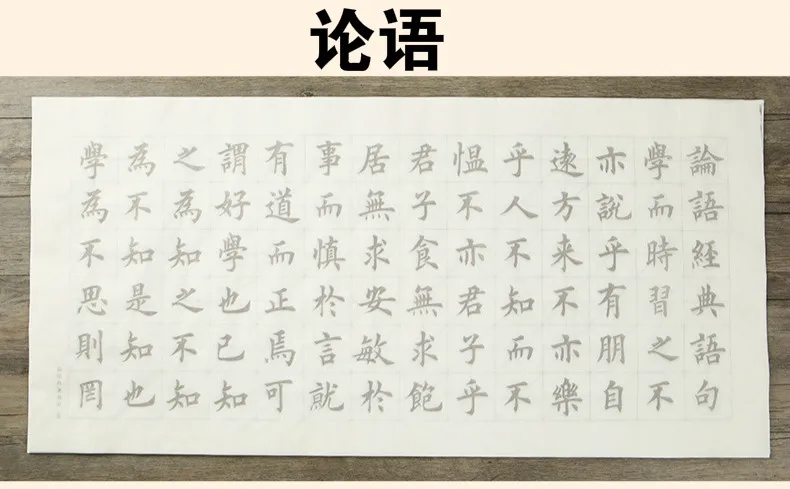 论语
論語經典語句
學而時習之不
亦說乎有朋自
遠方来不亦樂
乎人不知而不
愠不亦君子乎
君子食無求飽
居無求安敏於
事而慎於言就
有道而正焉可
謂好學也已知
之為知之不知
為不知是知也
學為不思則罔